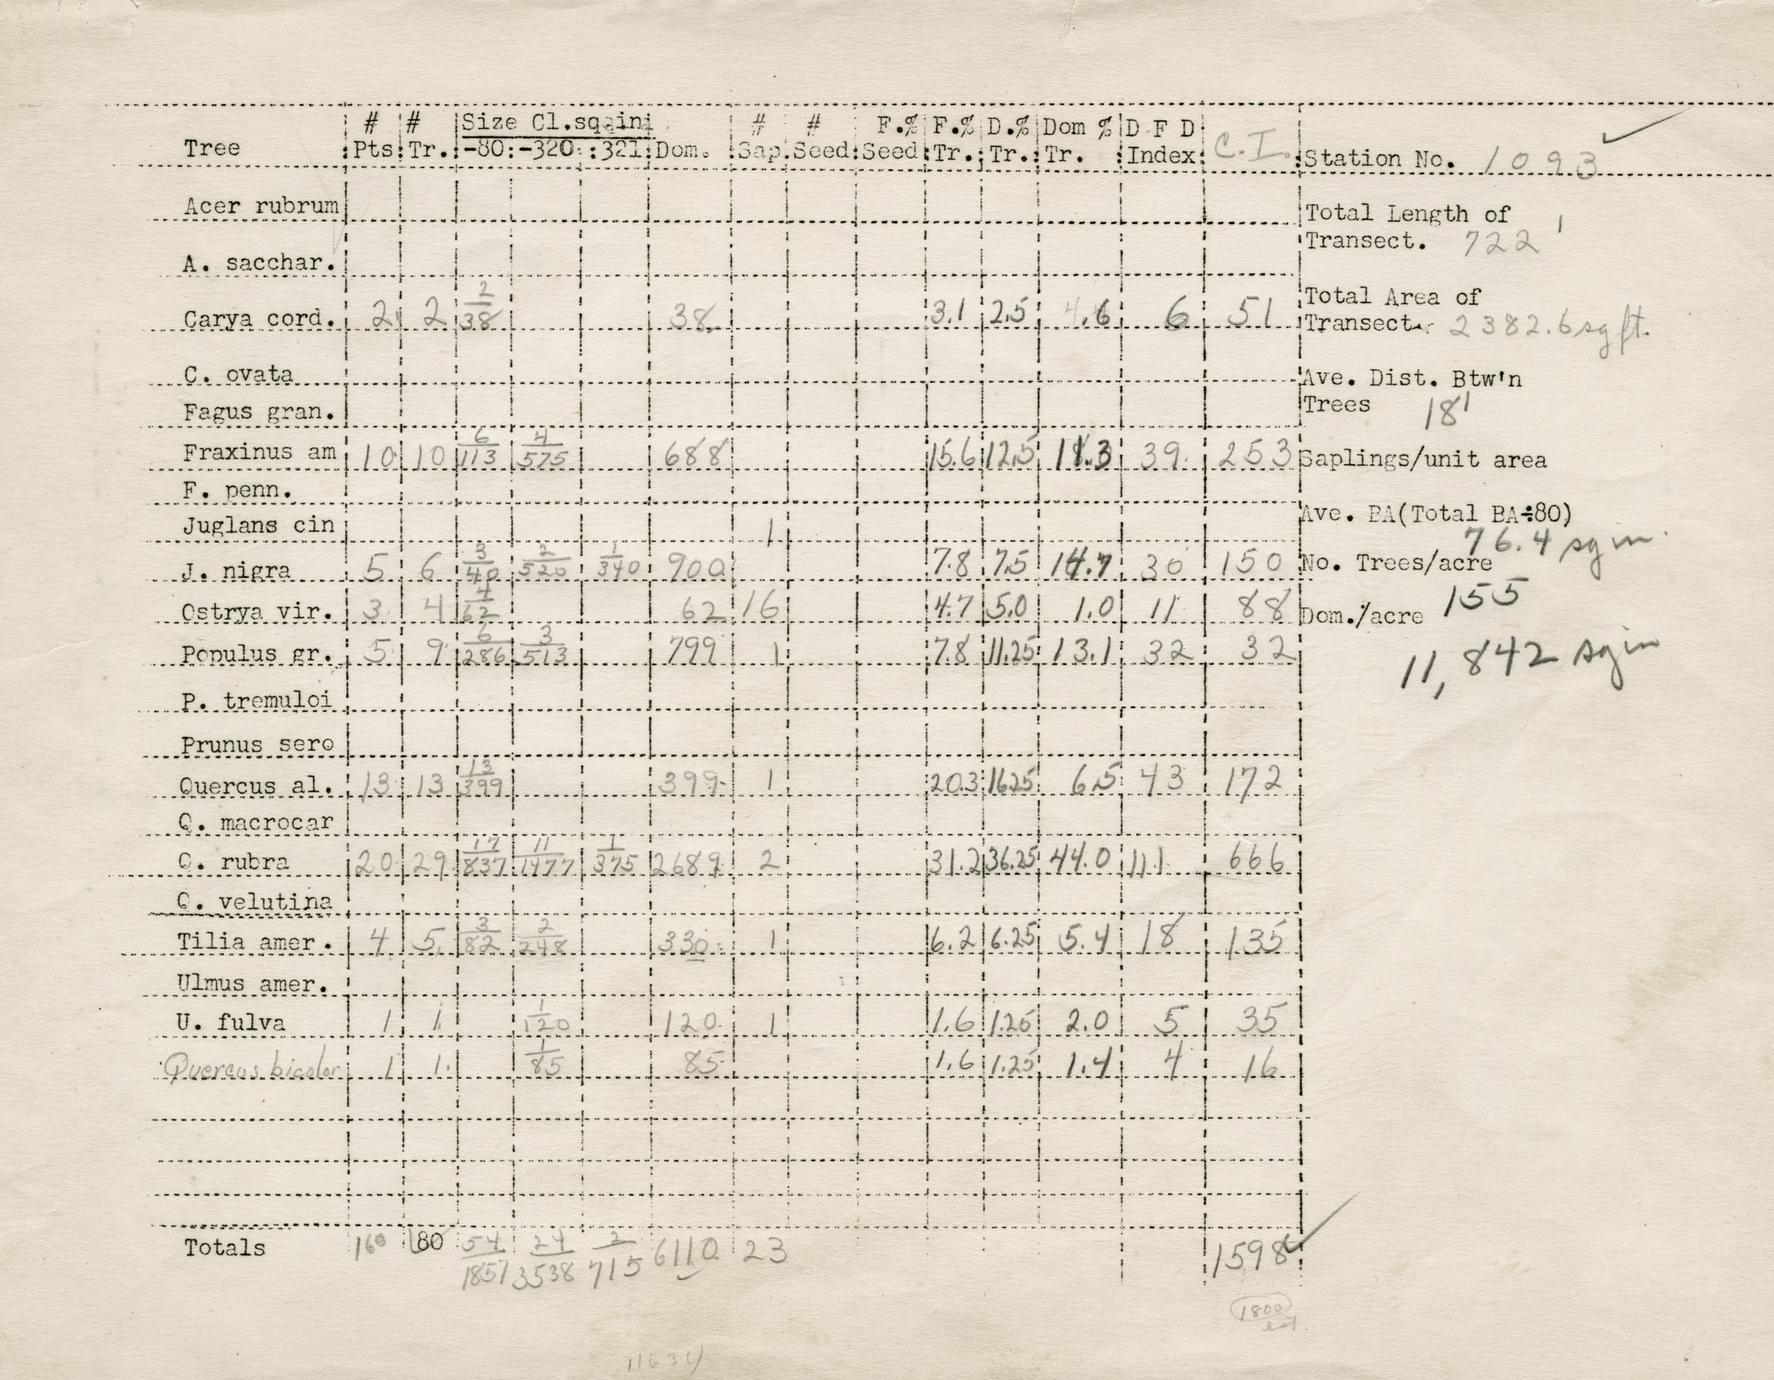 Tree # Pts # Tr. Size Cl.sq.in. -80 -320 321 Dom. # Sap # Seed F.% Seed F.% Tr. D.% Tr. Dom % Tr. D F D Index C.I. Station No. 1093
Acer rubrum
Total Length of
Transect. 722'
A. sacchar.
Carya cord. 2 2 2/38 38 3.1 2.5 4.6 6 51
Total Area of
Transect. 2382.6 sq ft.
C. ovata
Ave. Dist. Btw'n
Trees 18'
Fagus gran.
Fraxinus am 10 10 6/113 4/575 688 15.6 12.5 11.3 39 253
Saplings/unit area
F. penn.
Juglans cin 1
Ave. BA(Total BA÷80)
76.4 sq in.
J. nigra 5 6 3/40 2/520 1/340 900 7.8 7.5 14.7 30 150
No. Trees/acre
155
Ostrya vir. 3 4 4/62 62 16 4.7 5.0 1.0 11 88
Dom./acre
11,842 sq in
Populus gr. 5 9 6/286 3/513 799 1 7.8 11.25 13.1 32 32
P. tremuloi
Prunus sero
Quercus al. 13 13 13/399 399 1 20.3 16.25 6.5 43 172
Q. macrocar
Q. rubra 20 29 17/837 11/1477 1/375 2689 2 31.2 36.25 44.0 111 666
Q. velutina
Tilia amer. 4 5 3/82 2/248 330 1 6.2 6.25 5.4 18 135
Ulmus amer.
U. fulva 1 1 1/120 120 1 1.6 1.25 2.0 5 35
Quercus bicolor 1 1 1/85 85 1.6 1.25 1.4 4 16
Totals 160 80 54/1857 24/3538 2/715 6110 23 1598
1800
est.